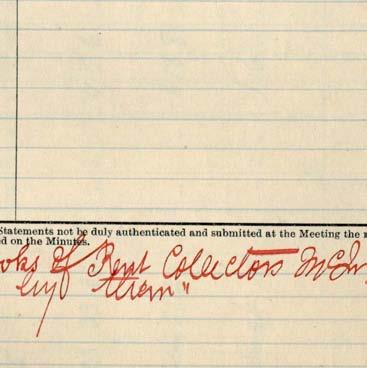 Statements not be duly authenticated and submitted at the Meeting the
ed on the Minutes.
oks of Rent Collectors
by them"